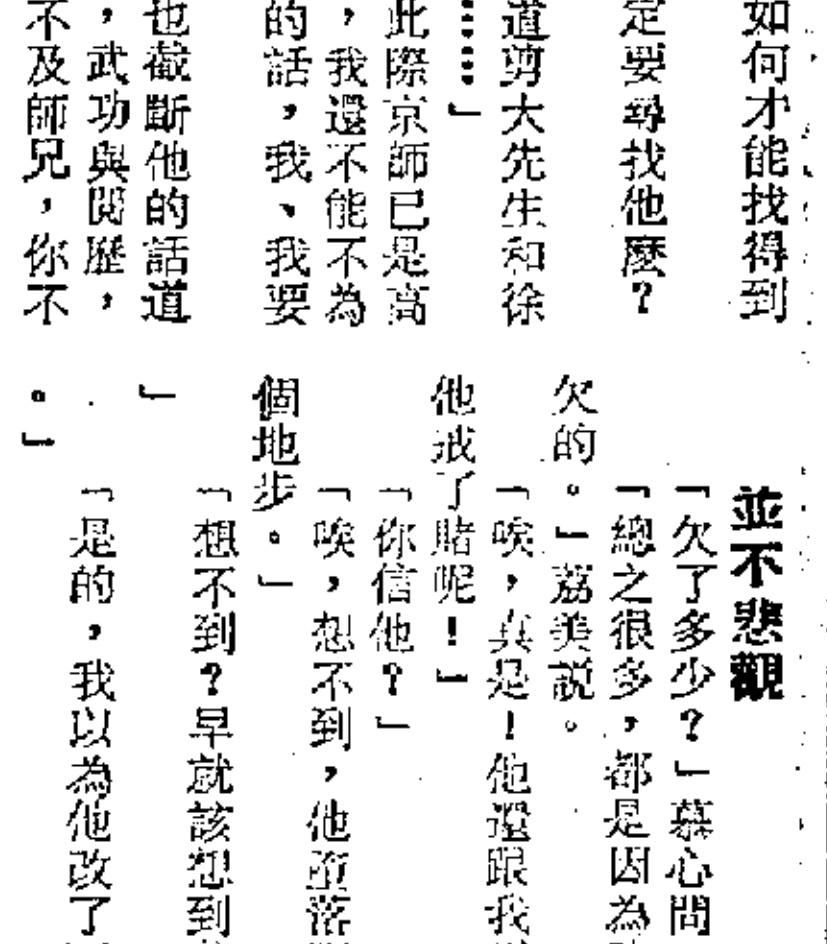 如何才能找得到
定要尋找他麽?
道剪大先生和徐
……」
此際京師已是高
，我還不能不為
的話，我、我要
也截斷他的話道
，武功與閱歷，
不及師兄，你不
並不悲觀
「欠了多少?」慕心問
「總之很多，都是因為
欠的。」荔美説。
「唉，真是!他還跟我
他戒了賭呢!」
「你信他?」
「唉，想不到，他墮落
個地步。」
「想不到?早就該想到
」
「是的，我以為他改了
。」